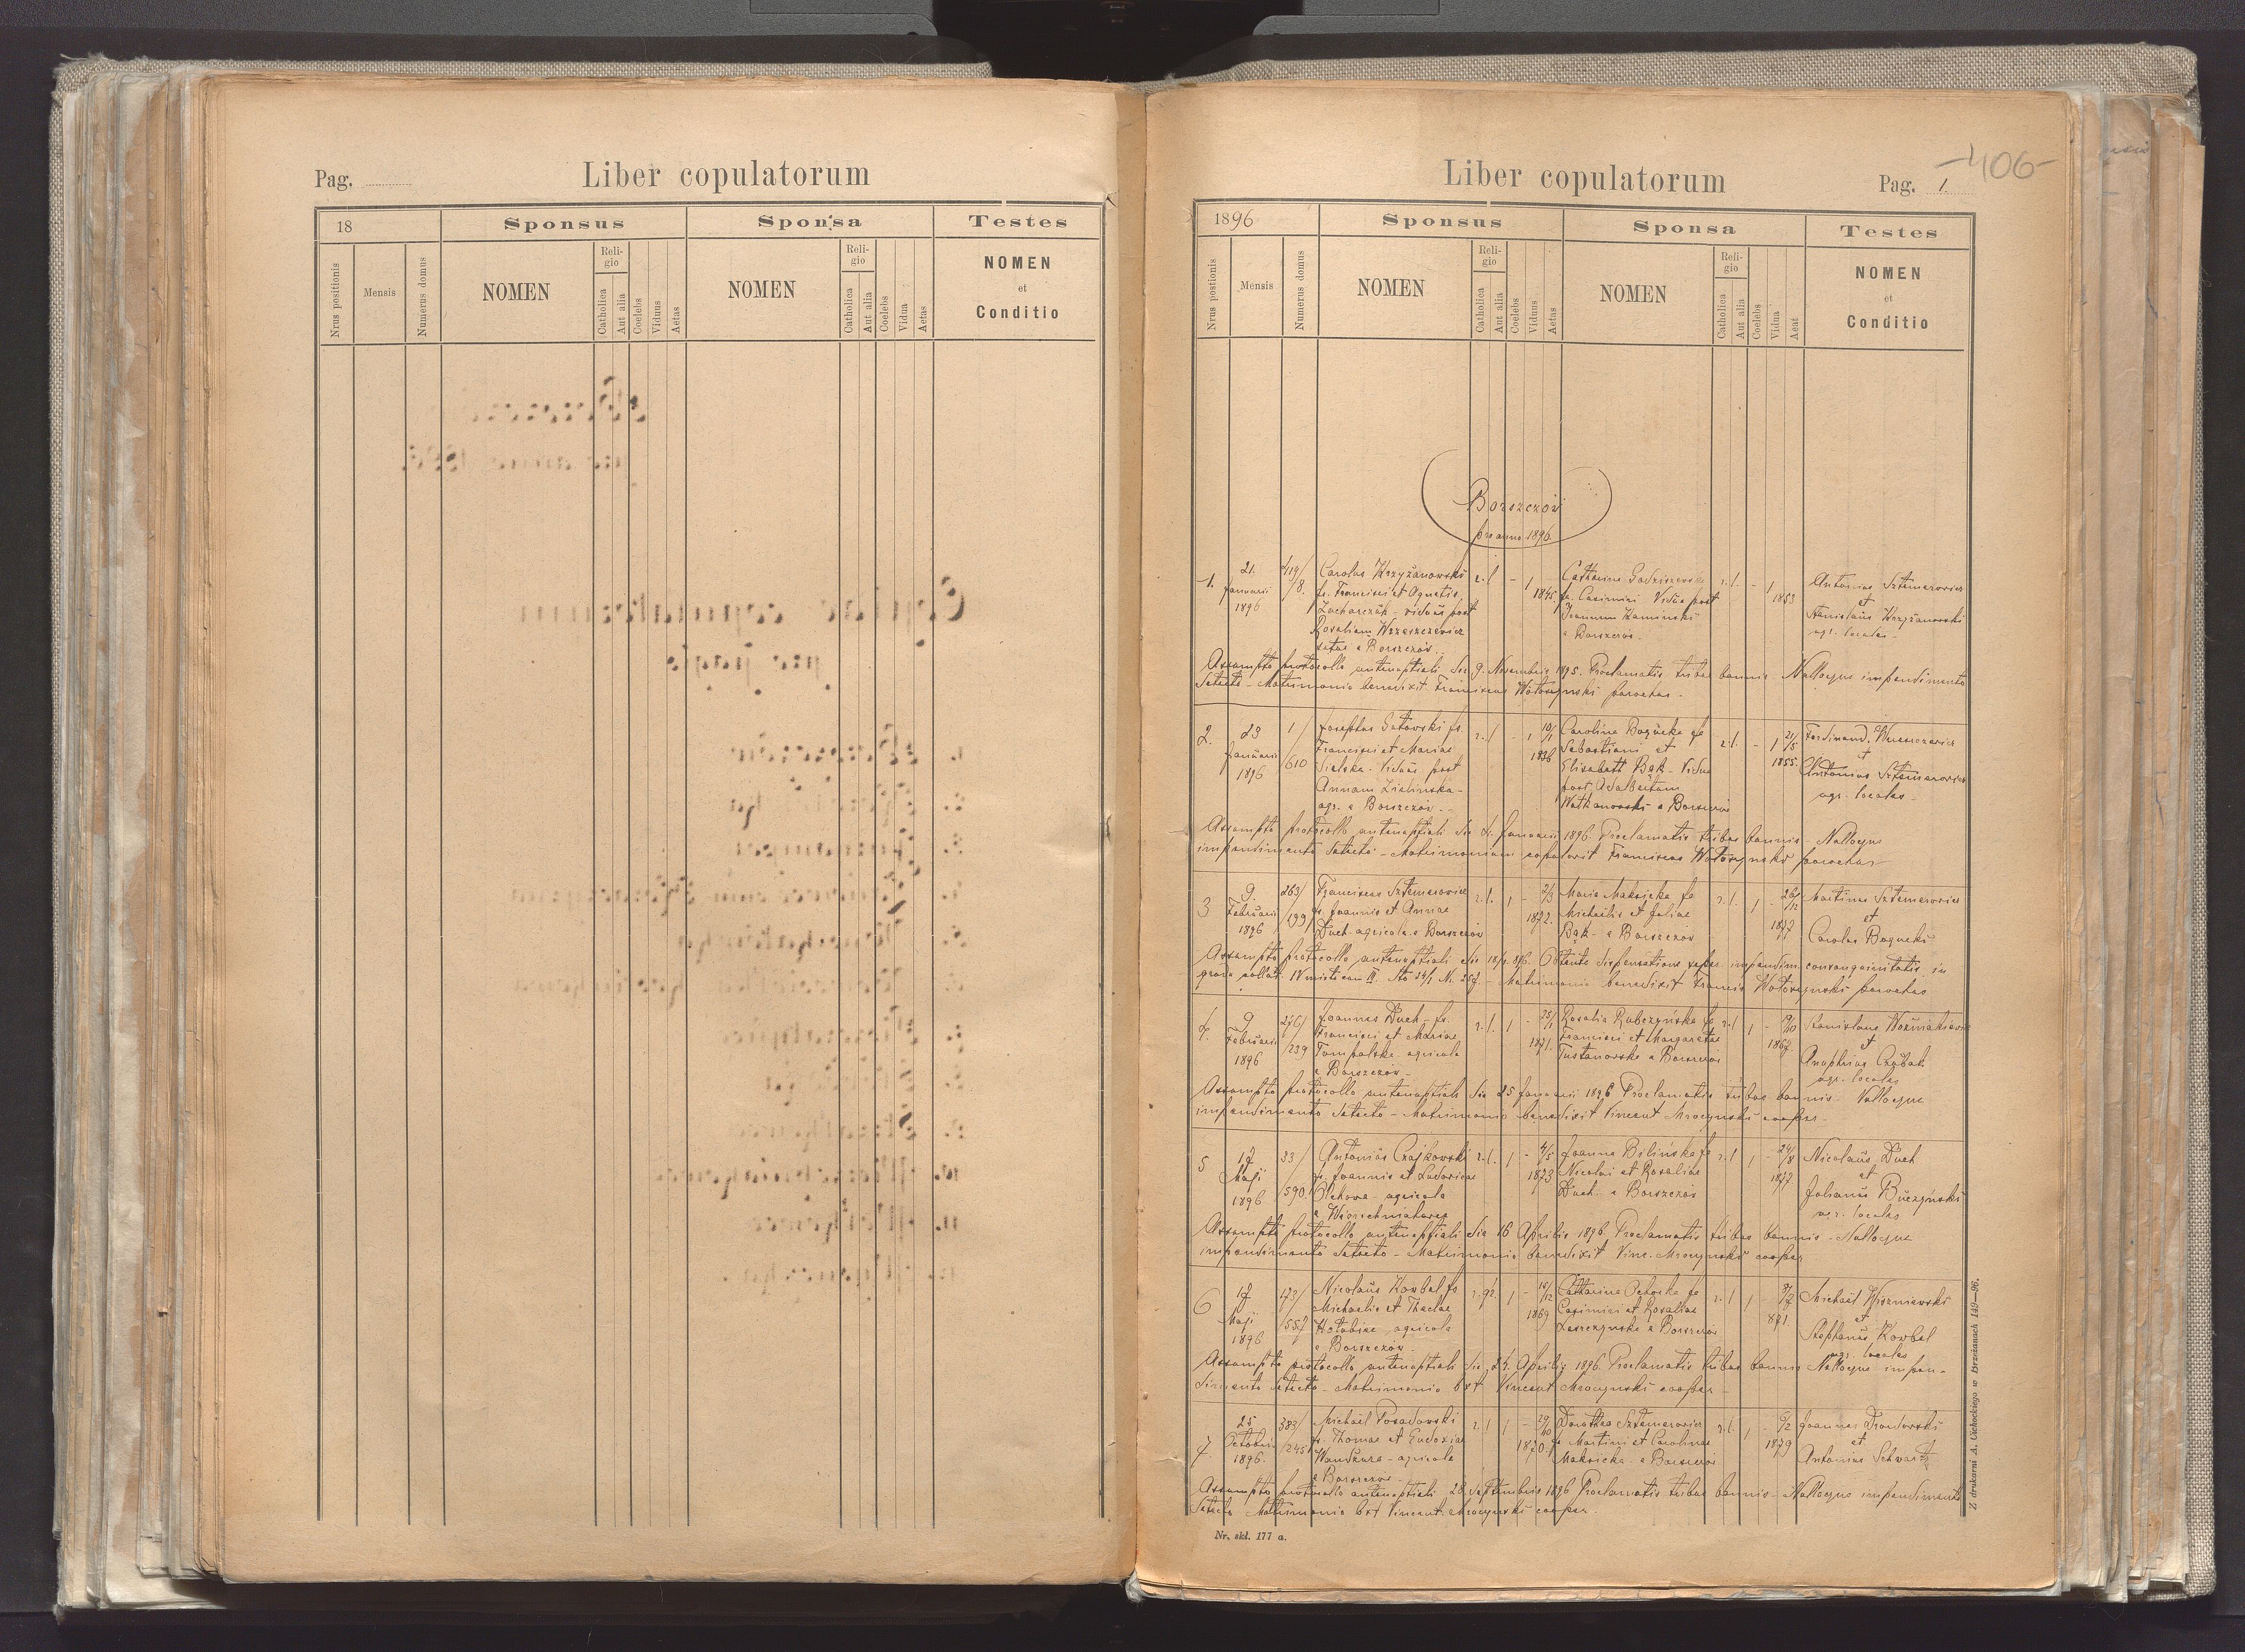 Pag.
Liber copulatorum
18
Sponsus
Sponsa
Testes
Nrus positionis
Mensis
Numerus domus
NOMEN
Reli-
gio
Catholica
Aut alia
Coelebs
Viduus
Aetas
NOMEN
Reli-
gio
Catholica
Aut alia
Coelebs
Vidua
Aetas
NOMEN
et
Conditio
Liber copulatorum
Pag. 1.
-406-
1896
Sponsus
Sponsa
Testes
Nrus postionis
Mensis
Numerus domus
NOMEN
Reli-
gio
Catholica
Aut alia
Coelebs
Viduus
Aetas
NOMEN
Reli-
gio
Catholica
Aut alia
Coelebs
Vidua
Aeat
NOMEN
et
Conditio
Borszczów
pro anno 1896
1.
21.
Januarii
1896
419/
8.
Carolus Krzyżanowski
fs. Francisci et Agnetis
Zacharczuk - viduus post
Rosaliam
a Borszczów
r. l. - 1
1845
Catharina
fa. Casimiri Vidua post
Joannem Kaminski
a Borszczów
r. l. - 1
1853
Antonius Sztemerowicz
et
Stanislaus Krzyżanowski
agr. locales
Assumpto protocollo antenuptiali die 9. Novembris 1895. Proclamatis tribus bannis - Nulloque impendimento
detecto - Matrimonio benedixit Franciscus Wołoszynski parochus -
2.
23
Januarii
1896
1/
610
Josephus Gutowski fs.
Francisci et Mariae
Sielska - Viduus post
Annam Zielinska -
agr. a Borszczów -
r. l - 1
10/1
1836
Carolina Bogucka fa
Sebastiani et
Elisabeth Bąk - Vidua
post Adalbertum
a Borszczów
r. l. - 1
21/5
1855.
Ferdinand.
et
Antonius Sztemerowicz
agr. locales -
Assumpto protocollo antenuptiali die Januarii 1896. Proclamatis tribus bannis - Nulloque
impendimento detecto - Matrimonium copulavit Franciscus Wołoszynski parochus
3
9.
Februarii
1896
263/
199
Franciscus Sztemerowicz
fs. Joannis et Annae
Duch. agricola a Borszczów
r. l. 1 -
2/3
1872.
Maria Maksicka fa
Michaelis et Juliae
Bąk - a Borszczów
r. l. 1 -
26/12
1877
Martinus Sztemerowicz
et
Carolus Bogucki
Assumpto protocollo antenuptiali die 18/1. 896. Obtenta dispensatione super impendim. consanguinitatis in
gradu collat. IV misto cum III. - Matrimonio benedixit Francis Wołoszynski parochus
4.
9
Februarii
1896
276/
239
Joannes Duch - fs.
Francisci et Mariae
Tompalska agricola
a Borszczów -
r. l. 1 -
25/1
1871.
Rosalia Rubczyńska fa
Francisci et Margaretae
Tustanowska a Borszczów
r. l 1 -
1867.
Stanislaus
et
agr. locales
Assumpto protocollo antenuptiali die 25 Januarii 1896 Proclamatis tribus bannis. Nulloque
impendimento detecto - Matrimonio benedixit Vincent Mroczynski cooper -
5
17
Maji
1896
33/
590.
Antonius Czajkowski
fs. Joannis et Ludovicae
Olchowa - agricola
a
r. l. 1 -
4/5
1873
Joanna Bilińska fa
Nicolai et Rosaliae
Duch - a Borszczów
r. l 1 -
24/8
1877
Nicolaus Duch
et
Julianus Buczyński
agr. locales
Assumpto protocollo antenuptiali die 16 Aprilis 1896. Proclamatis tribus bannis - Nulloque
impendimento detecto - Matrimonio benedixit Vinc. Mroczynski cooper
6
17
Maji
1896
473/
557
Nicolaus Kowbel fs
Michaelis et Theclae
Hołubiec agricola
a Borszczów -
r. gr. 1 -
15/12
1869
Catharina Ochocka fa
Casimiri et Rosaliae
Leszczynska a Borszczów
r. l 1 -
871.
Michael Wiszniewski
et
Stephanus Kowbel
agr. locales
Assumpto protocollo antenuptiali die 24. Aprilis 1896. Proclamatis tribus bannis Nulloque impen-
dimento detecto - Matrimonio bxt Vincent Mroczynski cooper -
7.
25
Octobris
1896.
383/
245
Michael Posadowski
fs. Thomae et Eudoxiae
Wandzura - agricola
a Borszczów -
r. l 1 -
29/10
1870.
Dorothea Sztemerowicz
fa Martini et Carolinae
Maksicka - a Borszczów
r. l. 1 -
1879
Joannes
et
Antonius Schwartz
Assumpto protocollo antenuptiali 28 Septembris 1896 Proclamatis tribus bannis - Nulloque impendimento
detecto Matrimonio bxt Vincent. Mroczynski cooper.
Nr. skł. 177 a.
Z drukarni A. Cichockiego w Brzeżanach 149-96.